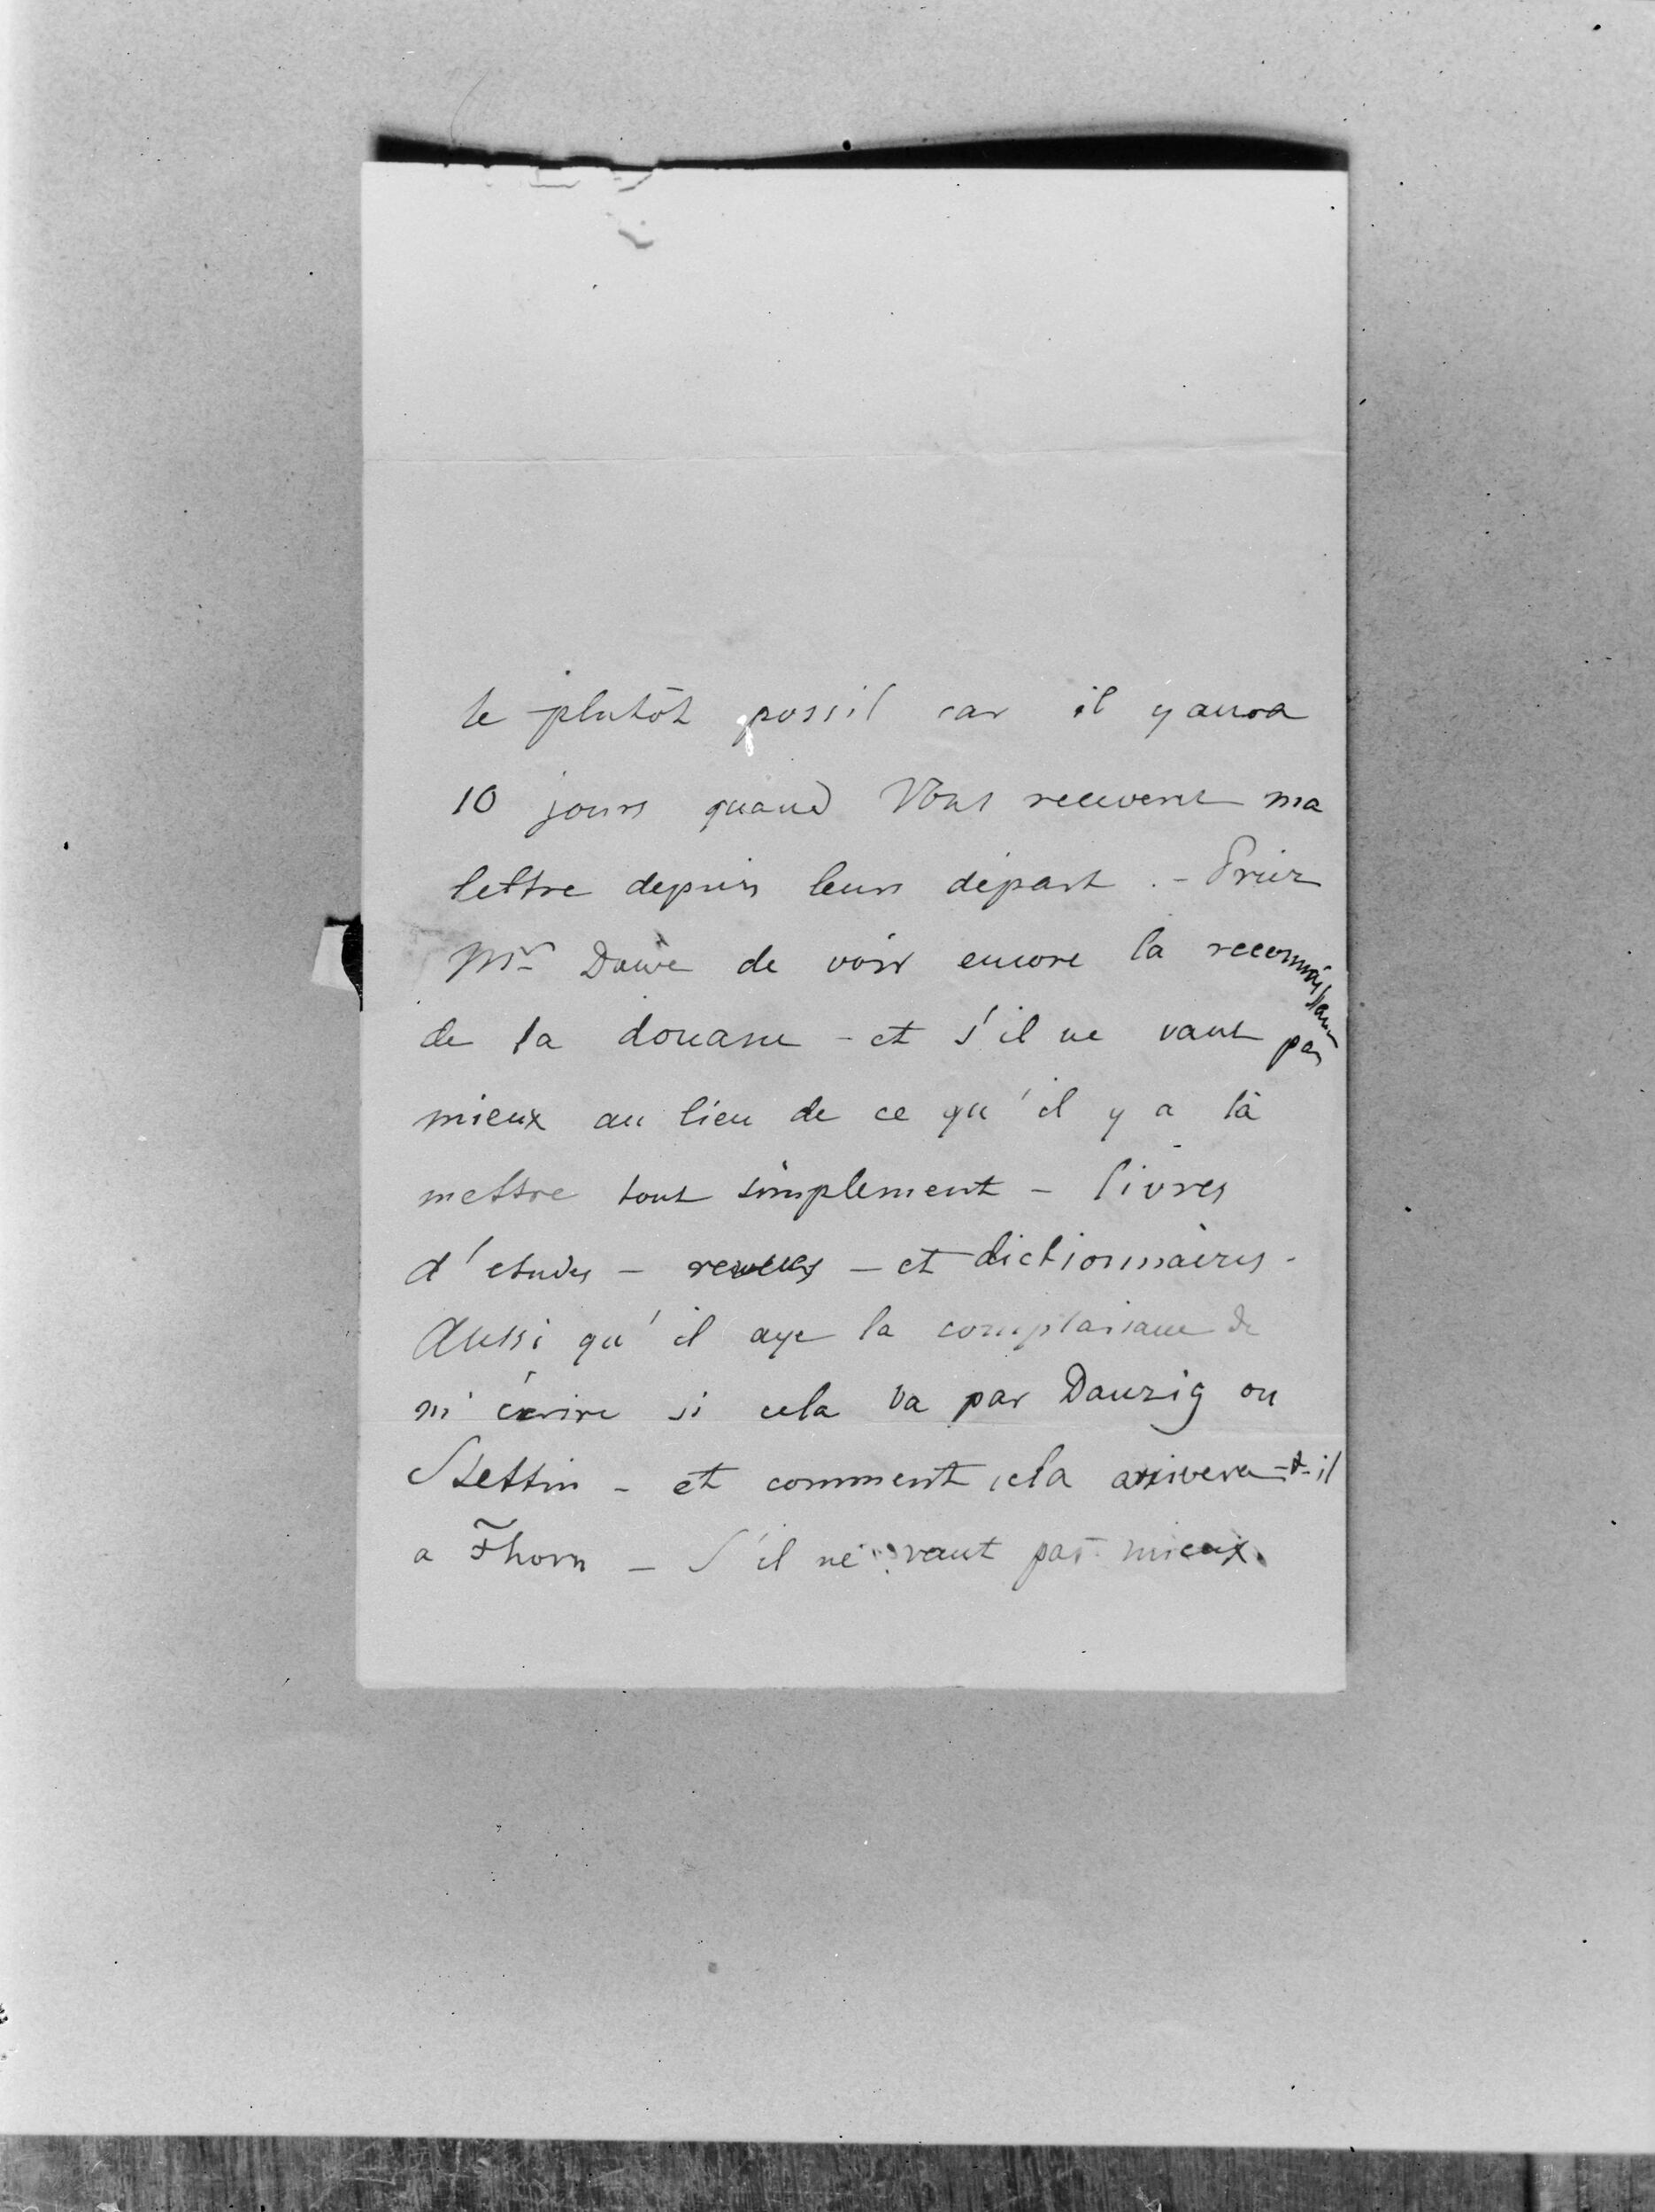 le plutôt possil car il y aura
10 jours quand Vous recevere ma
lettre depuis leurs départ . – Priez
Mr de voir encore la reconnaissance
de la douane – et s'il ne vaut pas
mieux au lieu de ce qu'il y a là
mettre tout simplement – livres
d'etudes – revues – et dictionnaires –
Aussi qu'il aye la complaisance de
m'écrire si cela va par Danzig ou
Stettin – et comment cela arrivera-t-il
a Thorn – S'il ne vaut pas mieux